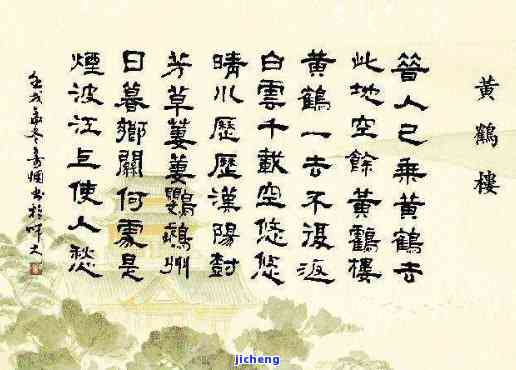 黃鶴樓
昔人已乘黃鶴去
此地空餘黃鶴樓
黃鶴一去不復返
白雲千載空悠悠
晴川歷歷漢陽樹
芳草萋萋鸚鵡州
日暮鄉關何處是
煙波江上使人愁
壬戌年冬書於師大
jicheng